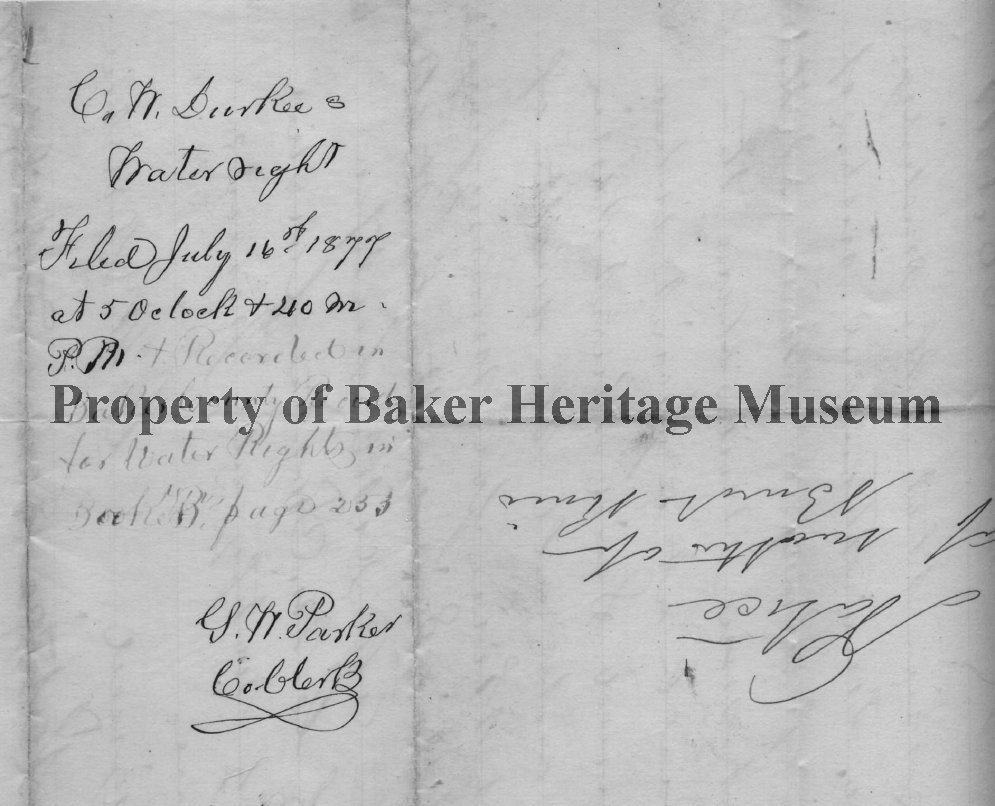 C. W. Durkee s
Water right
Filed July 16th 1877
at 5 Oclock & 40 m.
P.M. & Recorded in
Baker County Records
for Water Rights in
Book "B", page 233
G. W. Parker
Co. Clerk
Property of Baker Heritage Museum
Notice
of